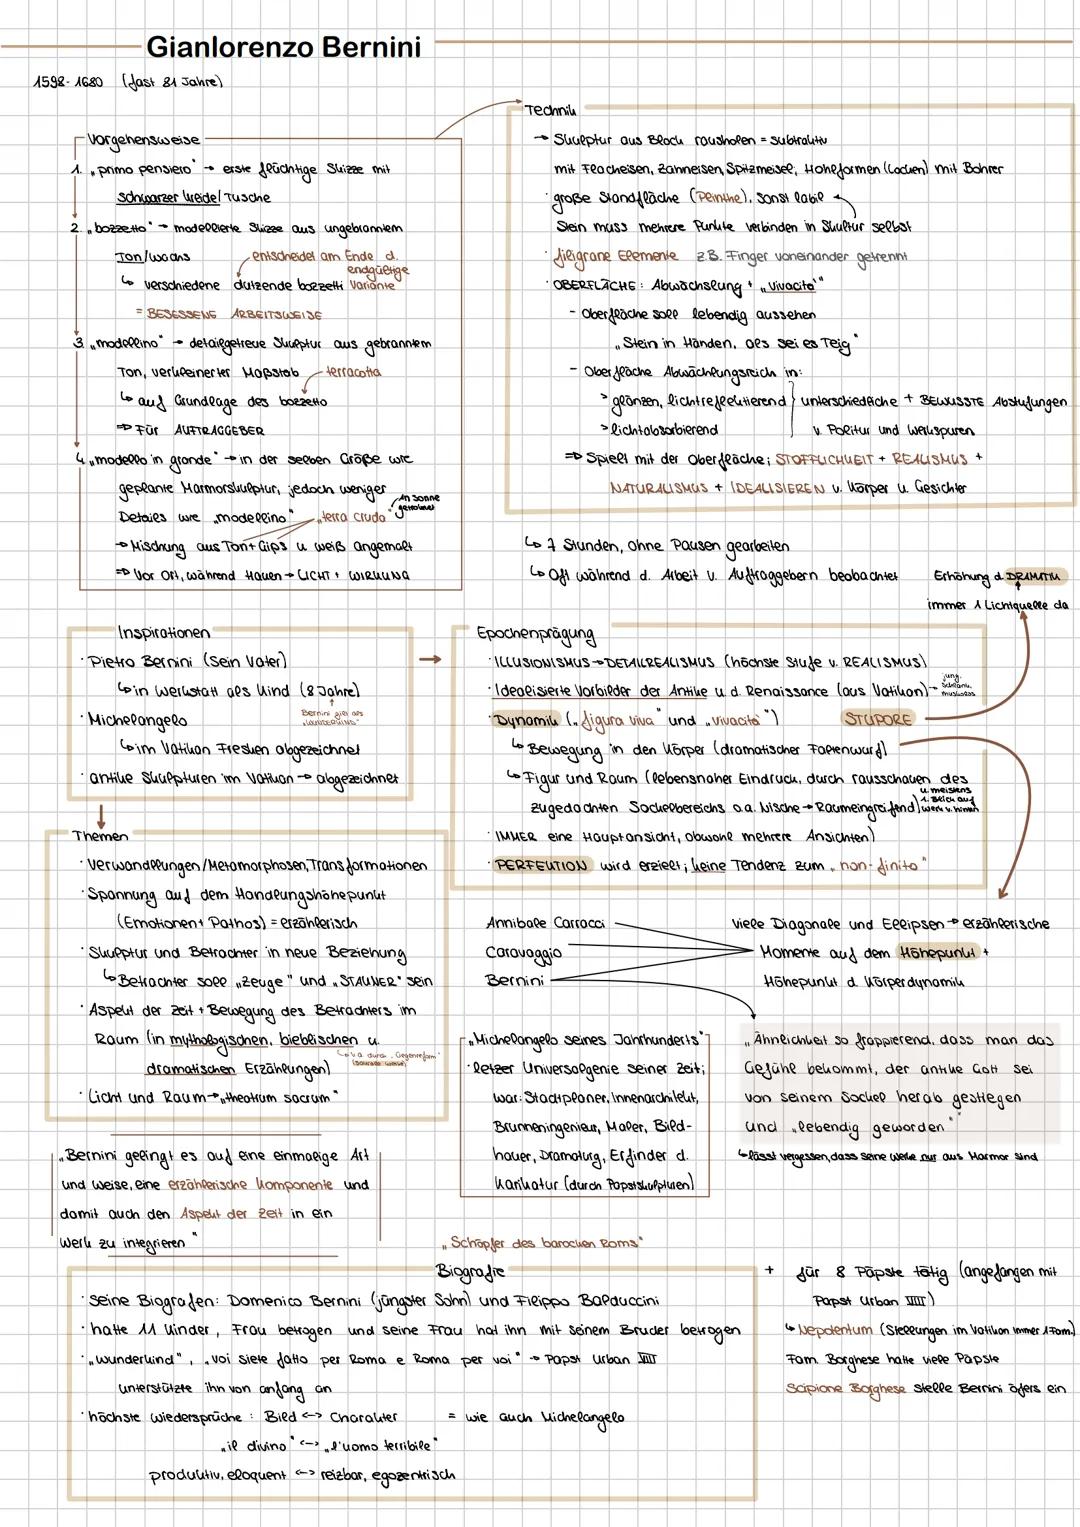 Gianlorenzo Bernini
1598-1680 (fast 81 Jahre)
Vorgehensweise
1. „primo pensiero" → erste flüchtige Skizze mit
schwarzer Kreide/Tusche
2. „bozzetto" → modellierte Skizze aus ungebranntem
Ton/Wachs
entscheidet am Ende d.
endgültige
Variante
↳ verschiedene dutzende bozzetti
= BESESSENE ARBEITSWEISE
3. „modellino" → detailgetreue Skulptur aus gebranntem
Ton, verkleinerter Maßstab
terracotta
↳ auf Grundlage des bozzetto
⇒ Für AUFTRAGGEBER
4. „modello in grande" → in der selben Größe wie
geplante Marmorskulptur, jedoch weniger
Details wie „modellino"
„terra cruda"
An Sonne
getrocknet
→ Mischung aus Ton+Gips u weiß angemalt
⇒ Vor Ort, während Hauen → LICHT + WIRKUNG
Technik
→ Skulptur aus Block rausholen = subtraktiv
mit Flacheisen, Zahneisen, Spitzmeisel, Hohlformen (Locken) mit Bohrer
· große Standfläche (Pelinthe), sonst labil
Stein muss mehrere Punkte verbinden in Skultur selbst
· filigrane Elemente z.B. Finger voneinander getrennt
· OBERFLÄCHE: Abwachslung + „vivacita"
- Oberfläche soll lebendig aussehen
„Stein in Händen, als sei es Teig"
- Oberfläche Abwächlungsreich in:
> glänzen, lichtreflektierend
> lichtabsorbierend
unterschiedliche + BEWUSSTE Abstufungen
v. Politur und Werkspuren
⇒ Spielt mit der Oberfläche; STOFFLICHKEIT + REALISMUS +
NATURALISMUS + IDEALISIEREN v. Körper u. Gesichter
↳ 7 Stunden, ohne Pausen gearbeiten
↳ Oft während d. Arbeit v. Auftraggebern beobachtet
Erhöhung d. DRAMATIK
immer 1 Lichtquelle da
Inspirationen
· Pietro Bernini (Sein Vater)
↳ in Werkstatt als Kind (8 Jahre)
Bernini galt als
„WUNDERKIND"
· Michelangelo
↳ im Vatikan Fresken abgezeichnet
· antike Skulpturen im Vatikan → abgezeichnet
Epochenprägung
· ILLUSIONISMUS → DETAILREALISMUS (höchste Stufe v. REALISMUS)
· Idealisierte Vorbilder der Antike u. d. Renaissance (aus Vatikan)
jung,
schlank,
muskulös
· Dynamik („figura viva" und „vivacita")
STUPORE
↳ Bewegung in den Körper (dramatischer Faltenwurf)
↳ Figur und Raum (lebensnaher Eindruck, durch rausschauen des
zugedachten Sockelbereichs o.a. Nische → Raumeingreifend)
u. meistens
1. Blick auf
Werk v. hinten
· IMMER eine Hauptansicht, obwohl mehrere Ansichten)
· PERFEKTION wird erzielt; keine Tendenz zum „non-finito"
Themen
· Verwandlungen/Metamorphosen, Transformationen
· Spannung auf dem Handlungshöhepunkt
(Emotionen+ Pathos) = erzählerisch
· Skulptur und Betrachter in neue Beziehung
↳ Betrachter soll „Zeuge" und „STAUNER" sein
· Aspekt der Zeit + Bewegung des Betrachters im
Raum (in mythologischen, bieblischen u.
dramatischen Erzählungen)
↳ v.a. durch „Gegenreform"
· Licht und Raum → „theatrum sacrum"
Annibale Carracci
Caravaggio
Bernini
viele Diagonale und Ellipsen → erzählerische
Momente auf dem Höhepunkt +
Höhepunkt d. Körperdynamik
„Michelangelo seines Jahrhunderts"
· letzer Universalgenie seiner Zeit;
war: Stadtplaner, Innenarchitekt,
Brunneningenieur, Maler, Bild-
hauer, Dramaturg, Erfinder d.
Karikatur (durch Papstskulpturen)
„Ähnlichkeit so frappierend, dass man das
Gefühl bekommt, der antike Gott sei
von seinem Sockel herab gestiegen
und „lebendig geworden""
↳ lässt vergessen, dass seine Werke nur aus Marmor sind
„Bernini gelingt es auf eine einmalige Art
und Weise, eine erzählerische Komponente und
damit auch den Aspekt der Zeit in ein
Werk zu integrieren"
„Schöpfer des barocken Roms"
Biografie
· Seine Biografen: Domenico Bernini (jüngster Sohn) und Filippo Balduccini
· hatte 11 Kinder, Frau betrogen und seine Frau hat ihn mit seinem Bruder betrogen
· „wunderkind", „voi siete fatto per Roma e Roma per voi" → Papst Urban VIII
unterstützte ihn von anfang an
· höchste Wiedersprüche: Bild <-> Charakter = wie auch Michelangelo
„il divino" <-> „l'uomo terribile"
produktiv, eloquent <-> reizbar, egozentrisch
+ für 8 Päpste tätig (angefangen mit
Papst Urban VIII)
↳ Nepotentum (Stellungen im Vatikan immer 1 Fam.)
Fam. Borghese hatte viele Päpste
Scipione Borghese stelle Bernini öfers ein